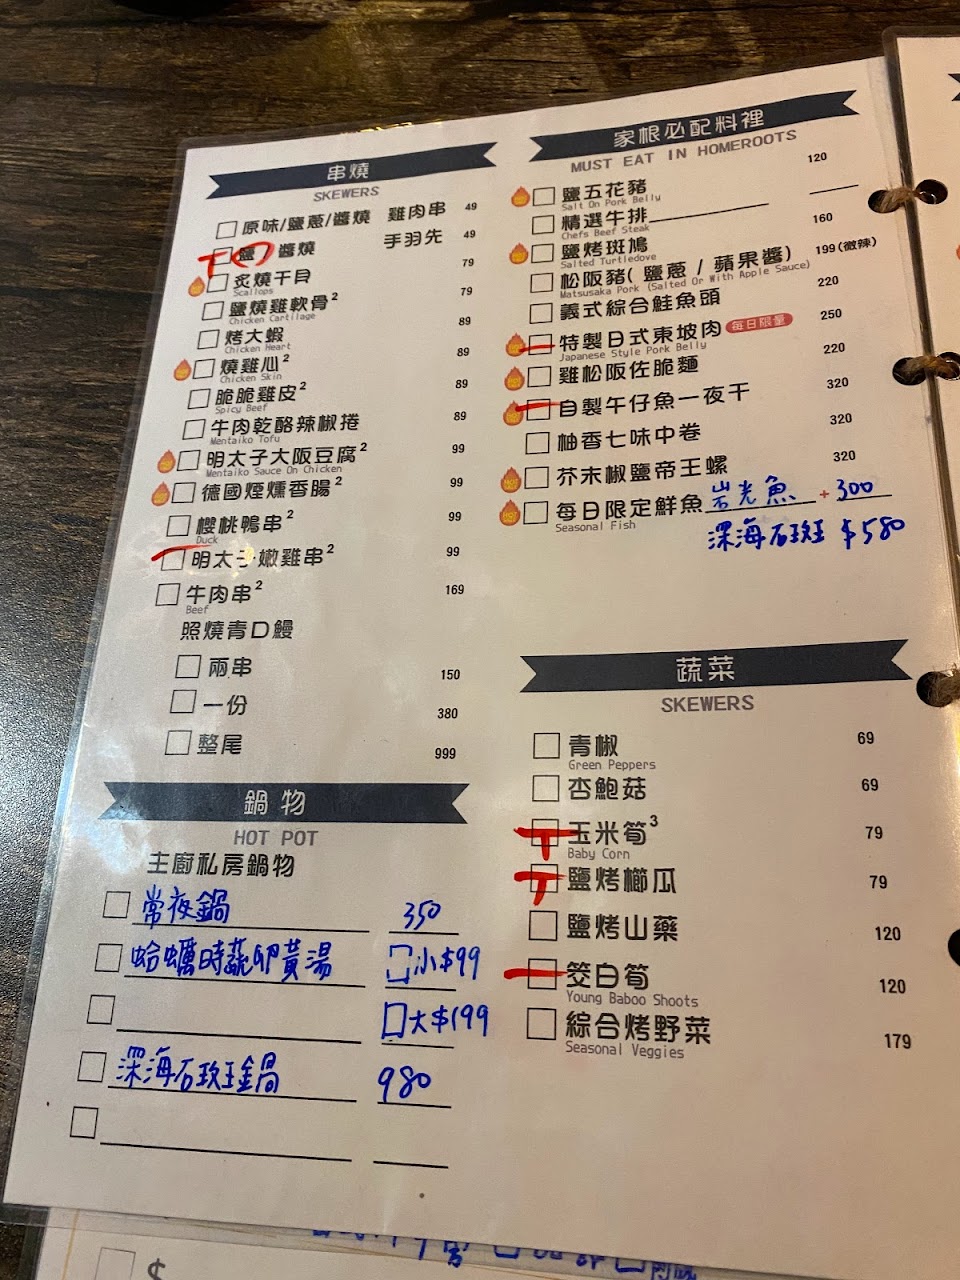 串燒
SKEWERS
原味/鹽蔥/醬燒 雞肉串 49
鹽/醬燒 手羽先 49
炙燒干貝 79
Scallops
鹽燒雞軟骨2 79
Chicken Cartilage
烤大蝦 89
Chicken Heart
燒雞心2 89
Chicken Skin
脆脆雞皮2 89
Spicy Beef
牛肉乾酪辣椒捲 89
Mentaiko Tofu
明太子大阪豆腐2 99
Mentaiko Sauce On Chicken
德國煙燻香腸2 99
櫻桃鴨串2 99
Duck
明太子嫩雞串2 99
牛肉串2 169
Beef
照燒青口鰻
兩串 150
一份 380
整尾 999
鍋物
HOT POT
主廚私房鍋物
常夜鍋 350
蛤蠣時蔬卵黃湯 小$99
大$199
深海石斑鍋 980
家根必配料裡
MUST EAT IN HOMEROOTS
鹽五花豬 120
Salt On Pork Belly
精選牛排
Chefs Beef Steak
鹽烤斑鳩 160
Salted Turtledove
松阪豬( 鹽蔥 / 蘋果醬) 199(微辣)
Matsusaka Pork (Salted Or With Apple Sauce)
義式綜合鮭魚頭 220
特製日式東坡肉 每日限量 250
Japanese Style Pork Belly
雞松阪佐脆麵 220
自製午仔魚一夜干 320
柚香七味中卷 320
芥末椒鹽帝王螺 320
每日限定鮮魚 岩光魚 + 300
Seasonal Fish
深海石斑 $580
蔬菜
SKEWERS
青椒 69
Green Peppers
杏鮑菇 69
玉米筍3 79
Baby Corn
鹽烤櫛瓜 79
鹽烤山藥 120
筊白筍 120
Young Baboo Shoots
綜合烤野菜 179
Seasonal Veggies